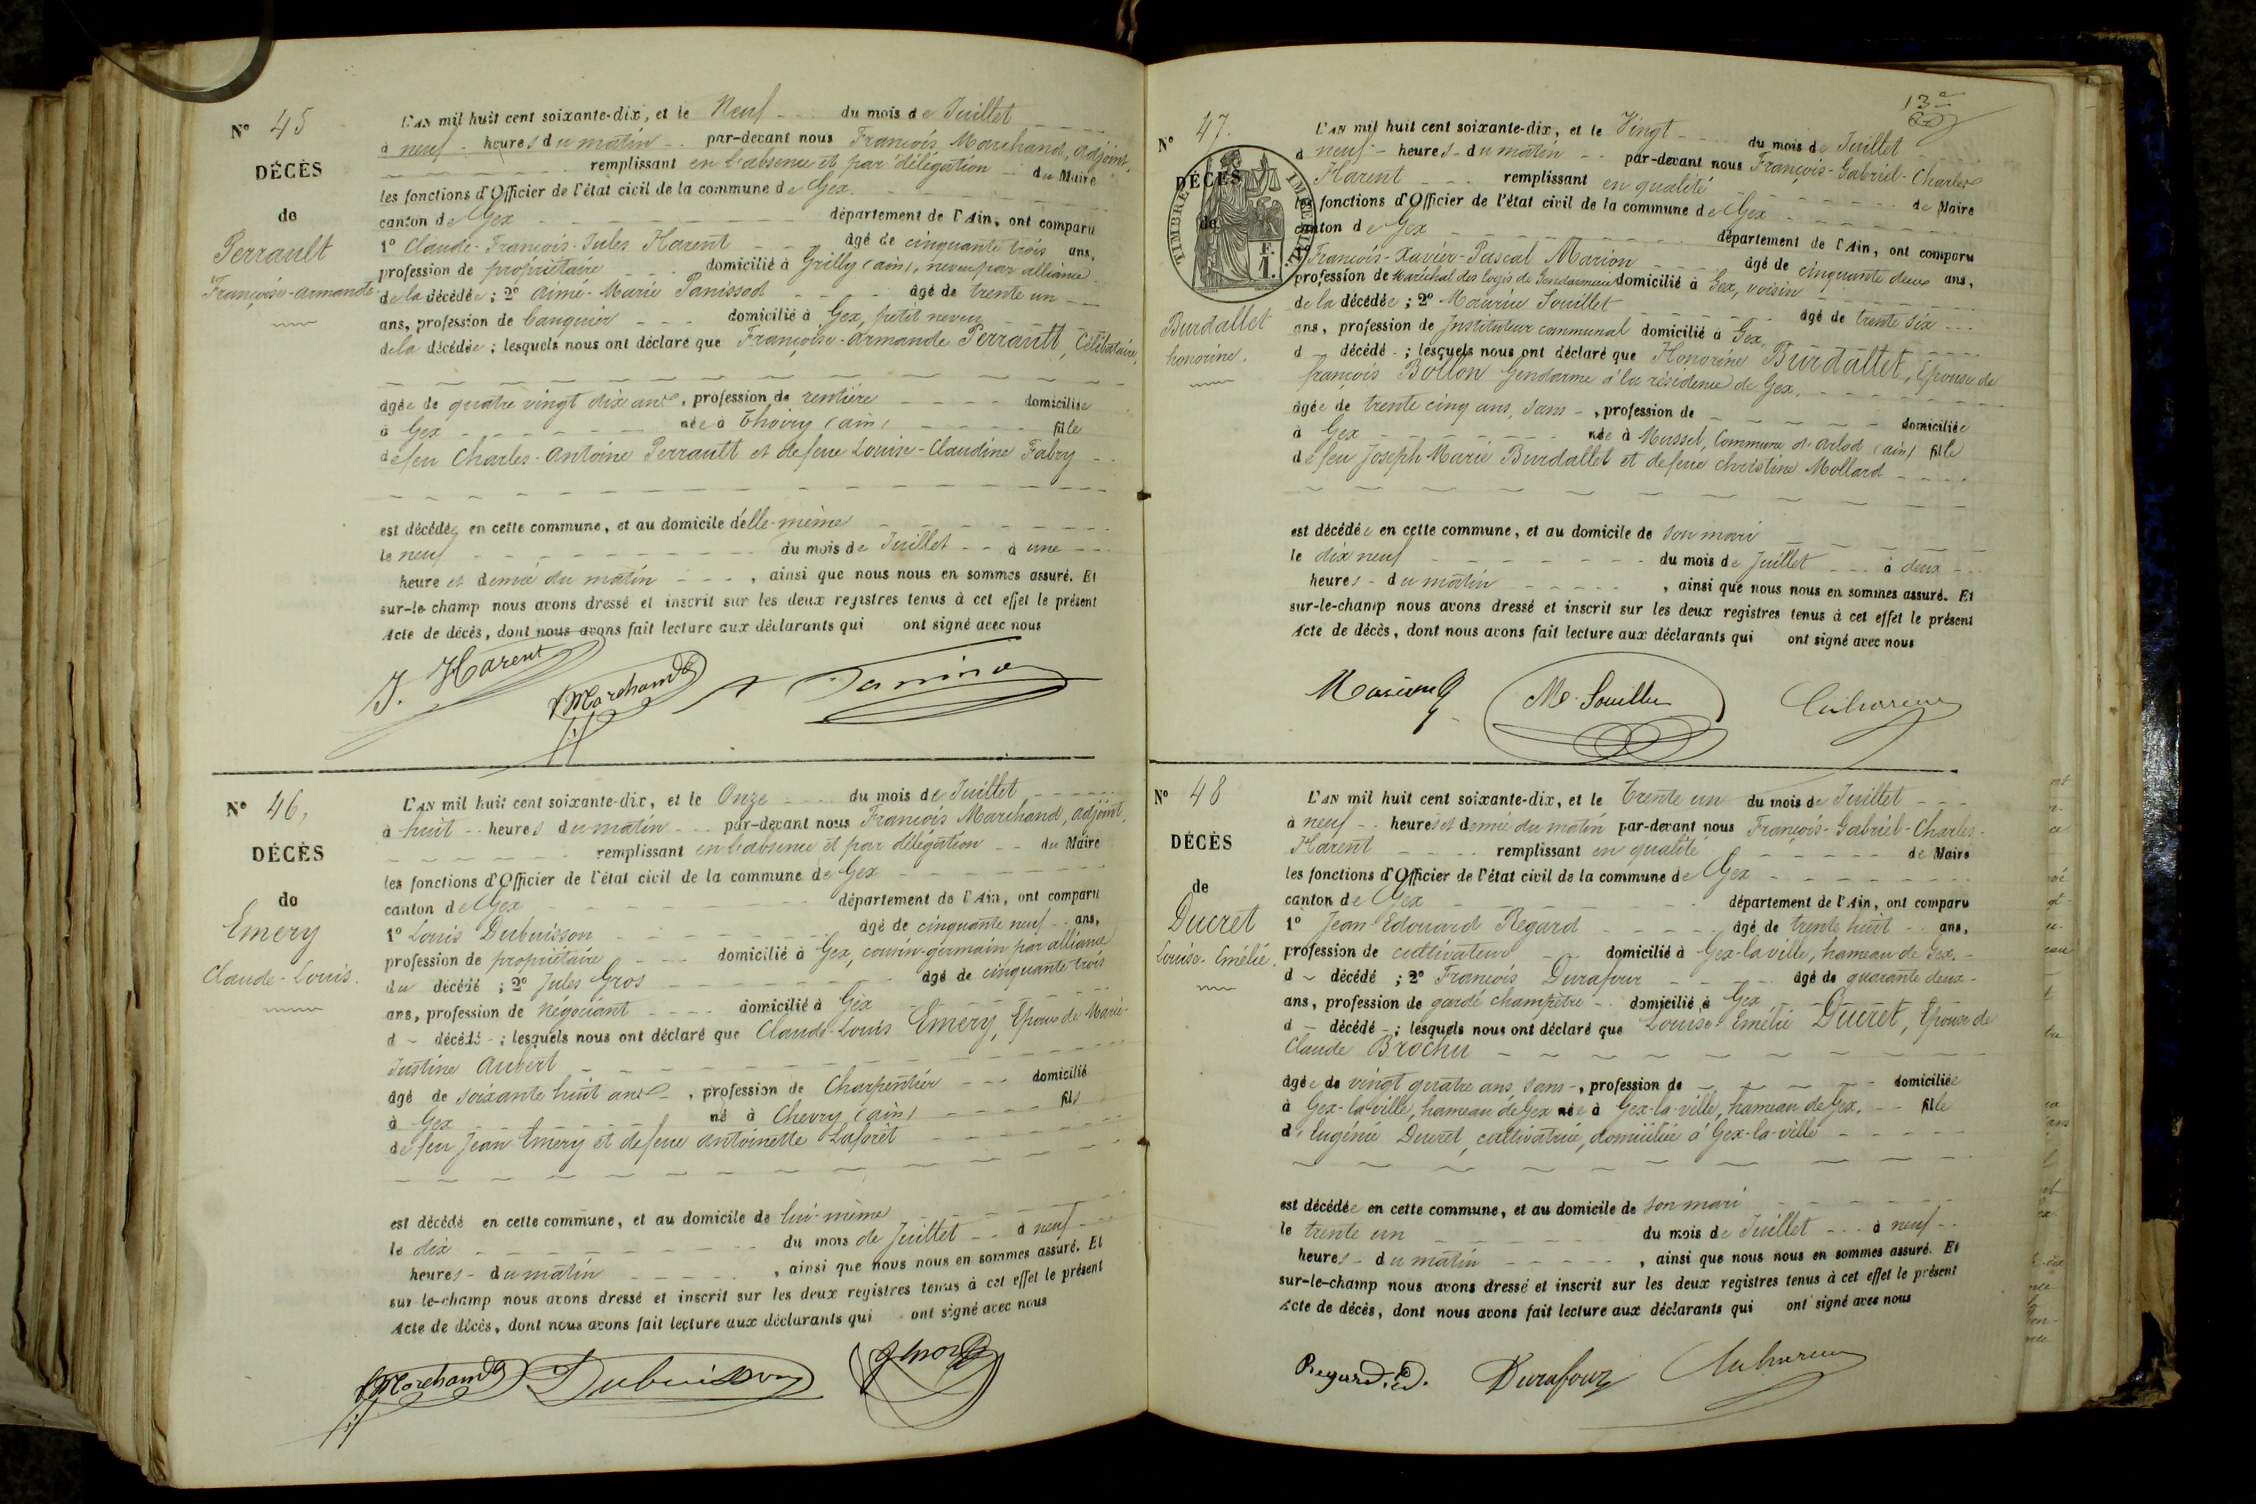 N° 45
DÉCÈS
de
Perrault
Françoise-Armande
L'AN mil huit cent soixante-dix, et le Neuf du mois de Juillet
à neuf heures du matin par-devant nous François Marchand, adjoint,
remplissant en l'absence et par délégation du Maire
les fonctions d'Officier de l'état civil de la commune de Gex
canton de Gex département de l'Ain, ont comparu
1° Claude-François-Jules Harent âgé de cinquante trois ans,
profession de propriétaire domicilié à Grilly (ain), neveu par alliance
de la décédée ; 2° Aimé-Marie Panissod âgé de trente un
ans, profession de banquier domicilié à Gex, petit neveu
de la décédée ; lesquels nous ont déclaré que Françoise-Armande Perrault, Célibataire,
âgée de quatre vingt dix ans, profession de rentière domiciliée
à Gex née à Thoiry (ain) fille
de feu Charles-Antoine Perrault et de feue Louise-Claudine Fabry
est décédée en cette commune, et au domicile d'elle-même
le neuf du mois de Juillet à une
heure et demie du matin, ainsi que nous nous en sommes assuré. Et
sur-le-champ nous avons dressé et inscrit sur les deux registres tenus à cet effet le présent
Acte de décès, dont nous avons fait lecture aux déclarants qui ont signé avec nous
J. Harent Marchand
N° 46,
DÉCÈS
de
Emery
Claude-Louis.
L'AN mil huit cent soixante-dix, et le Onze du mois de Juillet
à huit heures du matin par-devant nous François Marchand, adjoint,
remplissant en l'absence et par délégation du Maire
les fonctions d'Officier de l'état civil de la commune de Gex
canton de Gex département de l'Ain, ont comparu
1° Louis Dubuisson âgé de cinquante neuf ans,
profession de propriétaire domicilié à Gex, cousin-germain par alliance
du décédé ; 2° Jules Gros âgé de cinquante trois
ans, profession de négociant domicilié à Gex
d décédé ; lesquels nous ont déclaré que Claude-Louis Emery, Epoux de Marie-
Justine Aubert
âgé de soixante huit ans, profession de Charpentier domicilié
à Gex né à Chevry (ain) fils
de feu Jean Emery et de feue Antoinette Laforêt
est décédé en cette commune, et au domicile de lui-même
le dix du mois de Juillet à neuf
heures du matin, ainsi que nous nous en sommes assuré. Et
sur-le-champ nous avons dressé et inscrit sur les deux registres tenus à cet effet le présent
Acte de décès, dont nous avons fait lecture aux déclarants qui ont signé avec nous
Marchand Dubuisson J Gros
13e
N° 47.
DÉCÈS
de
TIMBRE IMPÉRIAL
F.
1.
Burdallet
honorine.
L'AN mil huit cent soixante-dix, et le Vingt du mois de Juillet
à neuf heures du matin par-devant nous François-Gabriel-Charles
Harent remplissant en qualité de Maire
les fonctions d'Officier de l'état civil de la commune de Gex
canton de Gex département de l'Ain, ont comparu
1° François-Xavier-Pascal Marion âgé de cinquante deux ans,
profession de Maréchal des logis de Gendarmerie domicilié à Gex, voisin
de la décédée ; 2° Maurice Souillet âgé de trente six
ans, profession de Instituteur communal domicilié à Gex
d décédé ; lesquels nous ont déclaré que Honorine Burdallet, Epouse de
françois Bollon Gendarme à la résidence de Gex,
âgée de trente cinq ans, sans, profession de domiciliée
à Gex née à Mussel, Commune d'Arlod (ain) fille
de feu Joseph Marie Burdallet et de feue Christine Mollard
est décédée en cette commune, et au domicile de son mari
le dix neuf du mois de Juillet à deux
heures du matin, ainsi que nous nous en sommes assuré. Et
sur-le-champ nous avons dressé et inscrit sur les deux registres tenus à cet effet le présent
Acte de décès, dont nous avons fait lecture aux déclarants qui ont signé avec nous
Marion
N° 48
DÉCÈS
de
Ducret
Louise-Emélie.
L'AN mil huit cent soixante-dix, et le Trente un du mois de Juillet
à neuf heures et demie du matin par-devant nous François-Gabriel-Charles-
Harent remplissant en qualité de Maire
les fonctions d'Officier de l'état civil de la commune de Gex
canton de Gex département de l'Ain, ont comparu
1° Jean-Edouard Regard âgé de trente huit ans,
profession de cultivateur domicilié à Gex-la-ville, hameau de Gex,
d décédé ; 2° François Durafour âgé de quarante deux
ans, profession de garde champêtre domicilié à Gex
d décédé ; lesquels nous ont déclaré que Louise-Emélie Ducret, Epouse de
Claude Brochu
âgée de vingt quatre ans, sans, profession de domiciliée
à Gex-la-ville, hameau de Gex née à Gex-la-ville, hameau de Gex, fille
d'Eugénie Ducret, cultivatrice, domiciliée à Gex-la-ville
est décédée en cette commune, et au domicile de son mari
le trente un du mois de Juillet à neuf
heures du matin, ainsi que nous nous en sommes assuré. Et
sur-le-champ nous avons dressé et inscrit sur les deux registres tenus à cet effet le présent
Acte de décès, dont nous avons fait lecture aux déclarants qui ont signé avec nous
Regard. Ed. Durafour